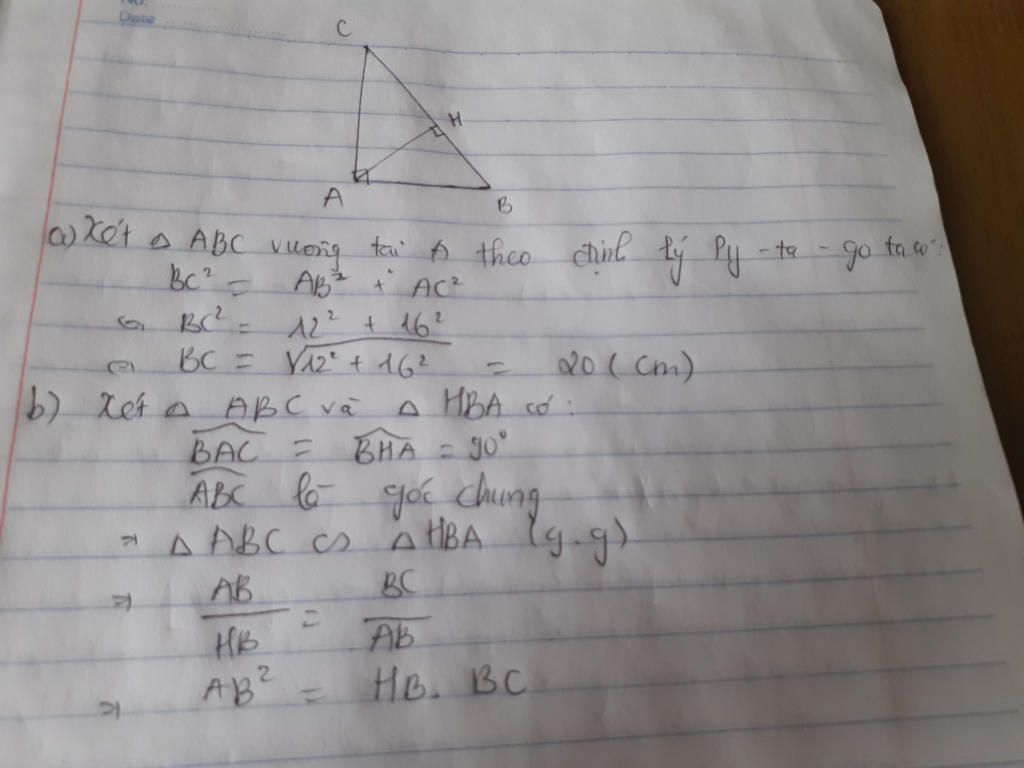 No.
Date
C
H
A
B
a) Xét △ ABC vuông tại A theo định lý Py-ta-go ta có:
BC² = AB² + AC²
⇔ BC² = 12² + 16²
⇔ BC = √12² + 16² = 20 (cm)
b) Xét △ ABC và △ HBA có:
BAC = BHA = 90°
ABC là góc chung
⇒ △ ABC ∽ △ HBA (g.g)
⇒ AB/HB = BC/AB
⇒ AB² = HB. BC